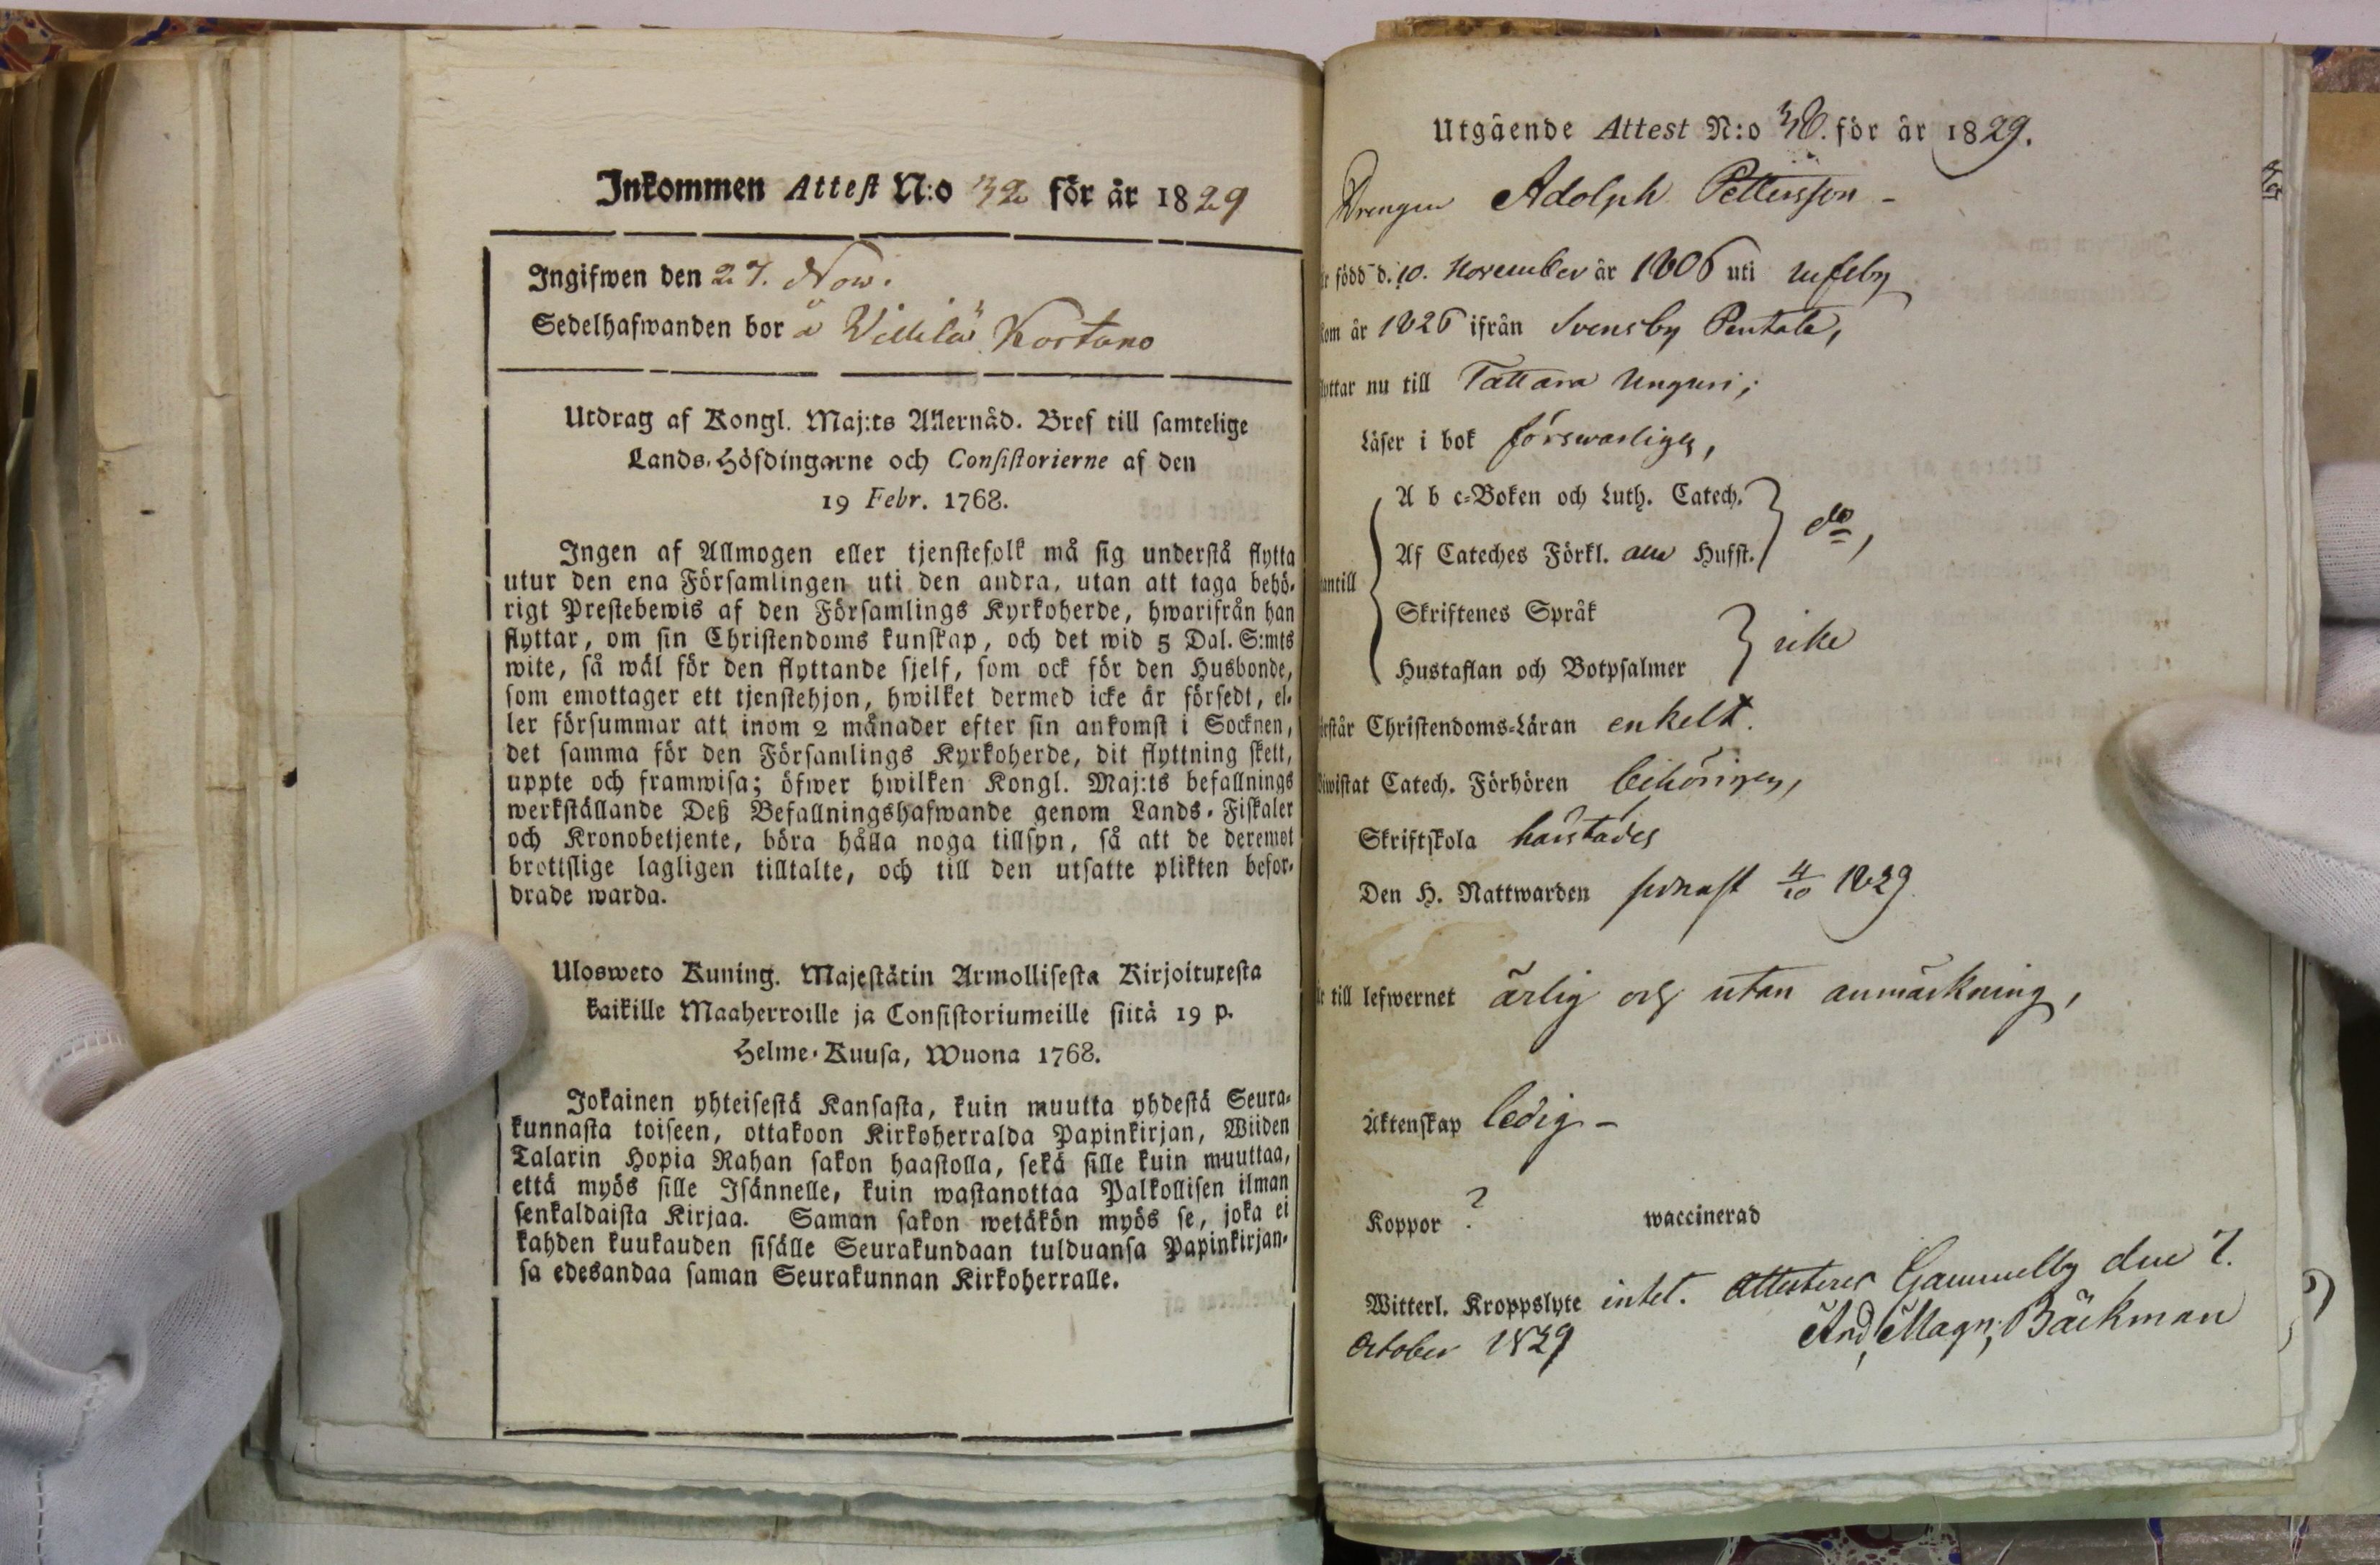 Inkommen Attest N:o 32 för år 1829
Ingifwen den 27. Now.
Sedelhafwanden bor å Willilä Kortano
Utdrag af Kongl. Maj:ts Allernåd. Bref till samtelige
Lands-Höfdingarne och Consistorierne af den
19 Febr. 1768.
Ingen af Allmogen eller tjenstefolk må sig understå flytta
utur den ena Församlingen uti den andra, utan att taga behö-
rigt Prestebewis af den Församlings Kyrkoherde, hwarifrån han
flyttar, om sin Christendoms kunskap, och det wid 5 Dal. S:mts
wite, så wäl för den flyttande sjelf, som ock för den Husbonde,
som emottager ett tjenstehjon, hwilket dermed icke är försedt, el-
ler försummar att inom 2 månader efter sin ankomst i Socknen,
det samma för den Församlings Kyrkoherde, dit flyttning skett,
uppte och framwisa; öfwer hwilken Kongl. Maj:ts befallnings
werkställande Deß Befallningshafwande genom Lands-Fiskaler
och Kronobetjente, böra hålla noga tillsyn, så att de deremot
brottslige lagligen tilltalte, och till den utsatte plikten befor-
drade warda.
Ulosweto Kuning. Majestätin Armollisesta Kirjoituxesta
kaikille Maaherroille ja Consistoriumeille siitä 19 p.
Helme-Kuusa, Wuona 1768.
Jokainen yhteisestä Kansasta, kuin muutta yhdestä Seura-
kunnasta toiseen, ottakoon Kirkoherralda Papinkirjan, Wiiden
Talarin Hopia Rahan sakon haastolla, sekä sille kuin muuttaa,
että myös sille Isännelle, kuin wastanottaa Palkollisen ilman
senkaldaista Kirjaa. Saman sakon wetäkön myös se, joka ei
kahden kuukauden sisälle Seurakundaan tulduansa Papinkirjan-
sa edesandaa saman Seurakunnan Kirkoherralle.
Utgående Attest N:o 38. för år 1829.
Drengen Adolph Pettersson -
född d. 10. November år 1806 uti
kom år 1826 ifrån Svensby Pentala,
flyttar nu till Tattara Unguri;
Läser i bok förswarligen,
A b c-Boken och Luth. Catech.
Af Cateches Förkl. alla Hufst. } do,
antill
Skriftenes Språk
Hustaflan och Botpsalmer } icke
rstår Christendoms-Läran enkelt.
Biwistat Catech. Förhören behörigen,
Skriftskola härstädes
Den H. Nattwarden senast 4/10 1829
till lefwernet ärlig och utan anmärkning,
Äktenskap ledig -
Koppor ? waccinerad
Witterl. Kroppslyte intet. Attesteras Gammelby den 7.
October 1829 And. Magn. Bäckman